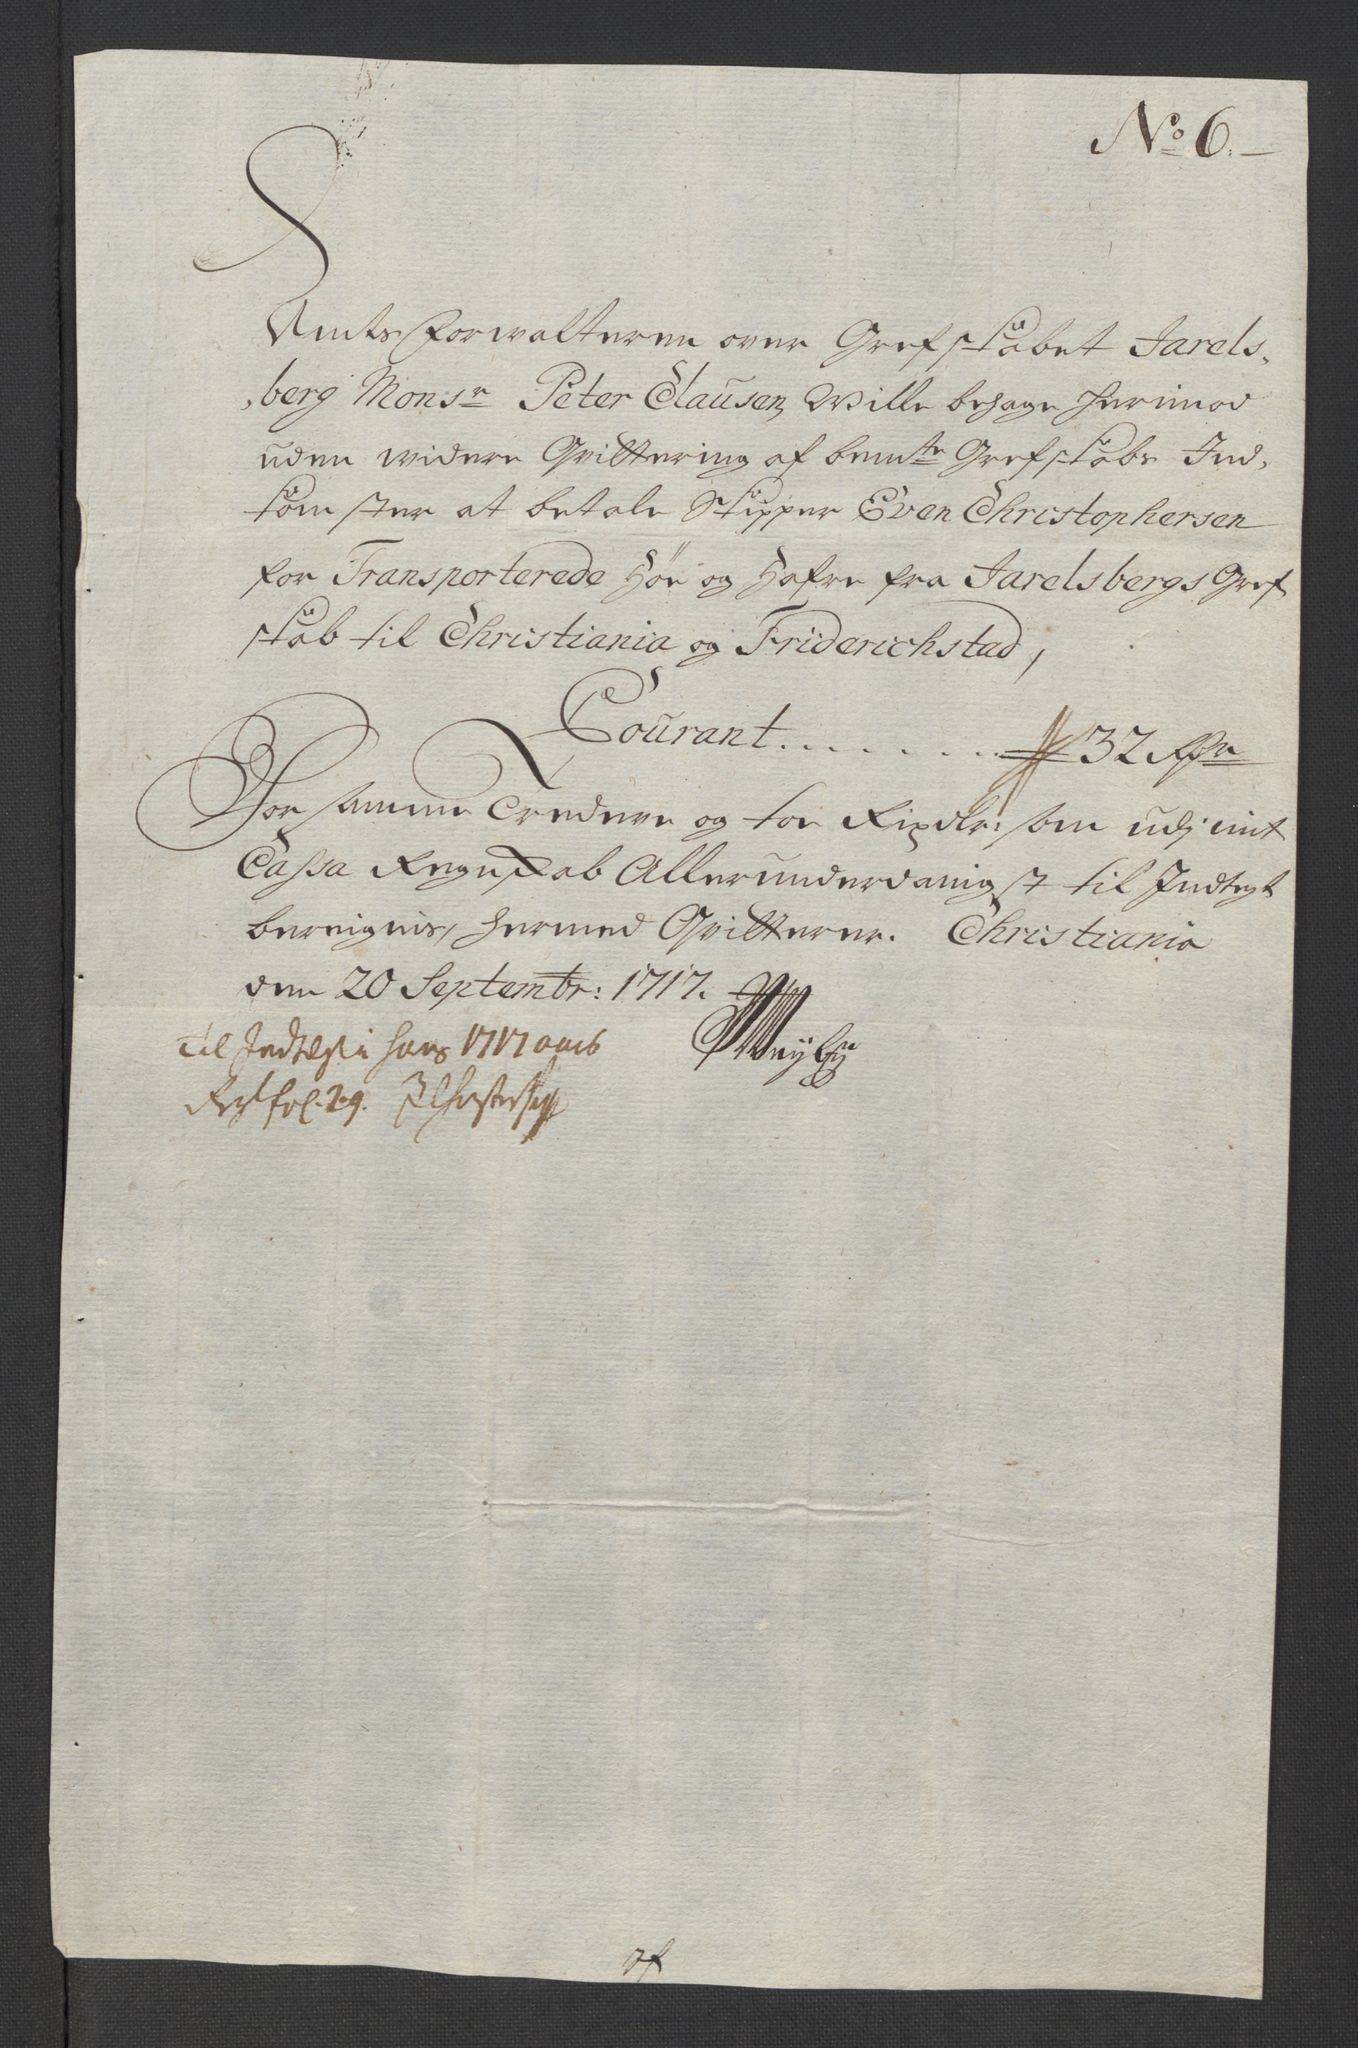 No 6.
Amts Forwalteren over Grefskabet Jarels,
,berg Monsr Peter Clausen, Wille behage herimod
uden widere Qvittering af bemte Grefskabs Ind,
komster at betale Skipper Even Christophersen
for Transporterede Höe og Hafre fra Jarelsbergs Gref
skab til Christiania og Friderichstad,
Courant . . . . . . . 32 Rdr
For samme Tredeve og toe Rixdlr: som udj mit
Cassa Regnskab Allerunderdanigst til Indtegt
beregnis, hermed Qvitterer. Christiania
den 20 Septembr: 1717.
Til Indtegt i hans 1717 aars
fol. 29.